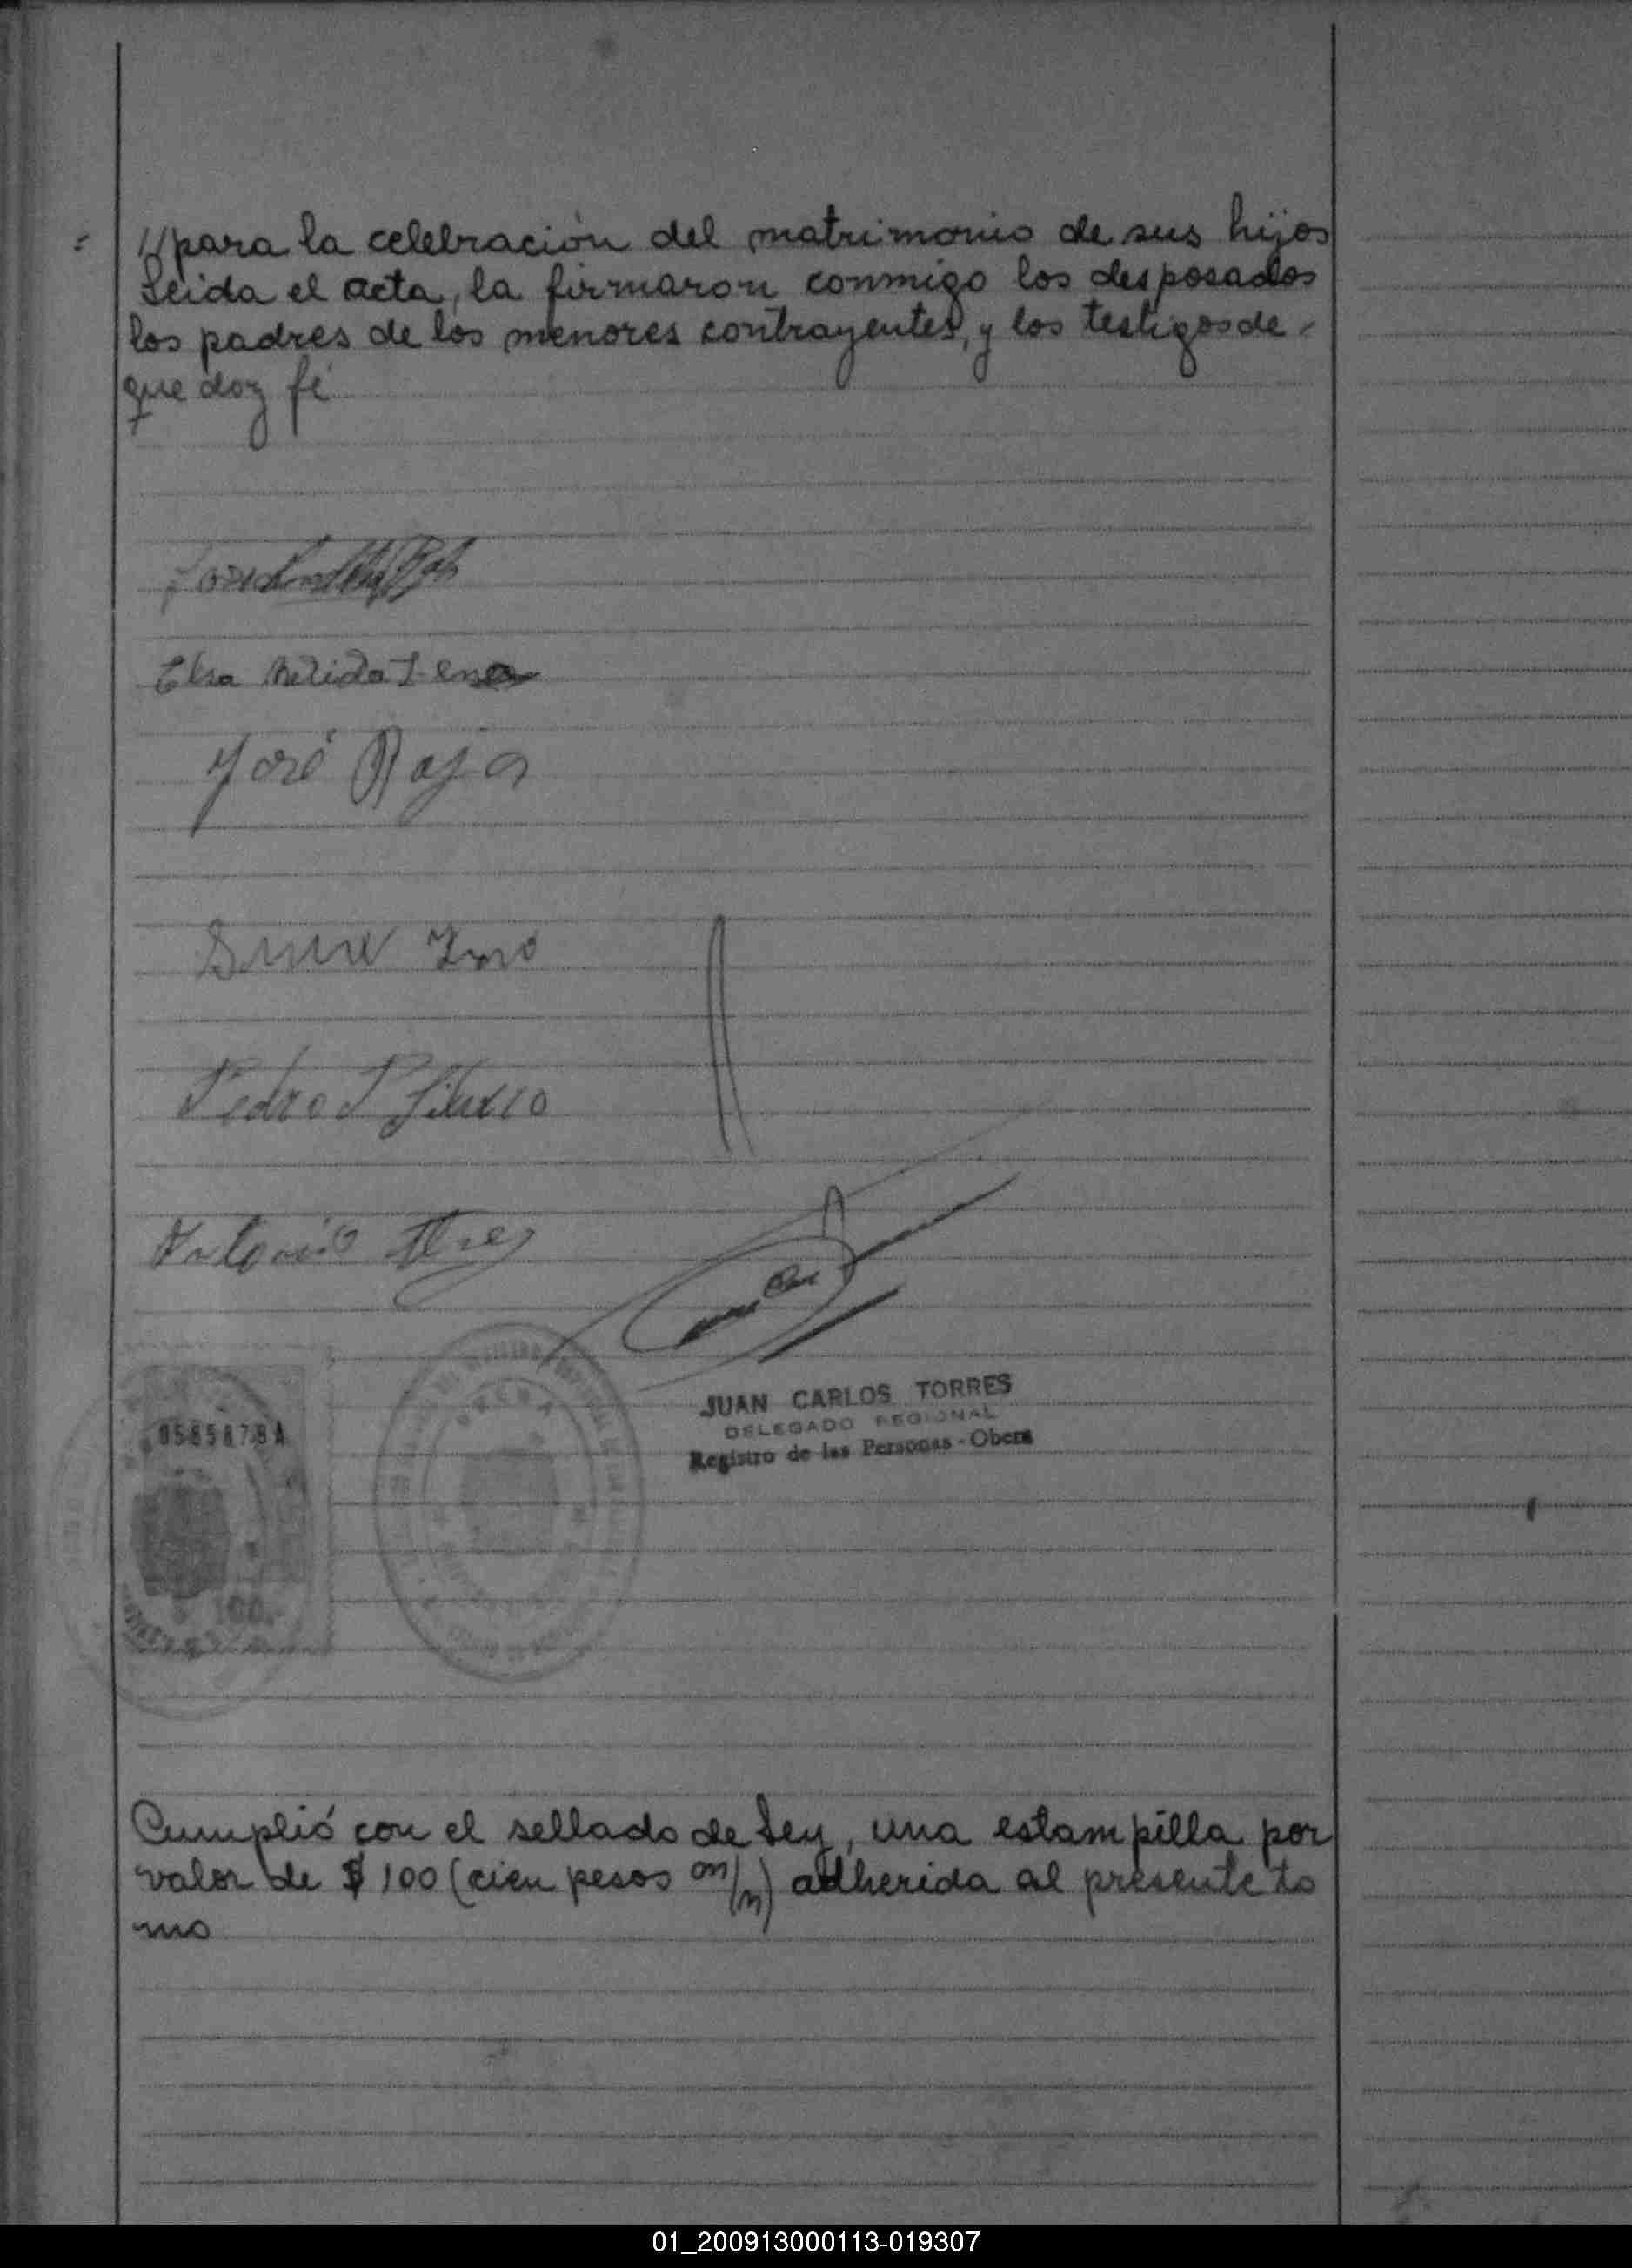 //para la celebración del matrimonio de sus hijos
Leida el acta, la firmaron conmigo los desposados
los padres de los menores contrayentes, y los testigos de
que doy fé
Elsa Nelida
José Rojas
Pedro
Antonio
0585878A
JUAN CARLOS TORRES
DELEGADO REGIONAL
Registro de las Personas - Obera
100.
Cumplió con el sellado de Ley, una estampilla por
valor de $ 100 (cien pesos m/n) adherida al presente to
mo
01_200913000113-019307